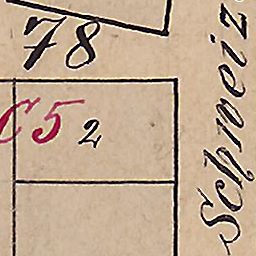 78
C5 2
Schweiz